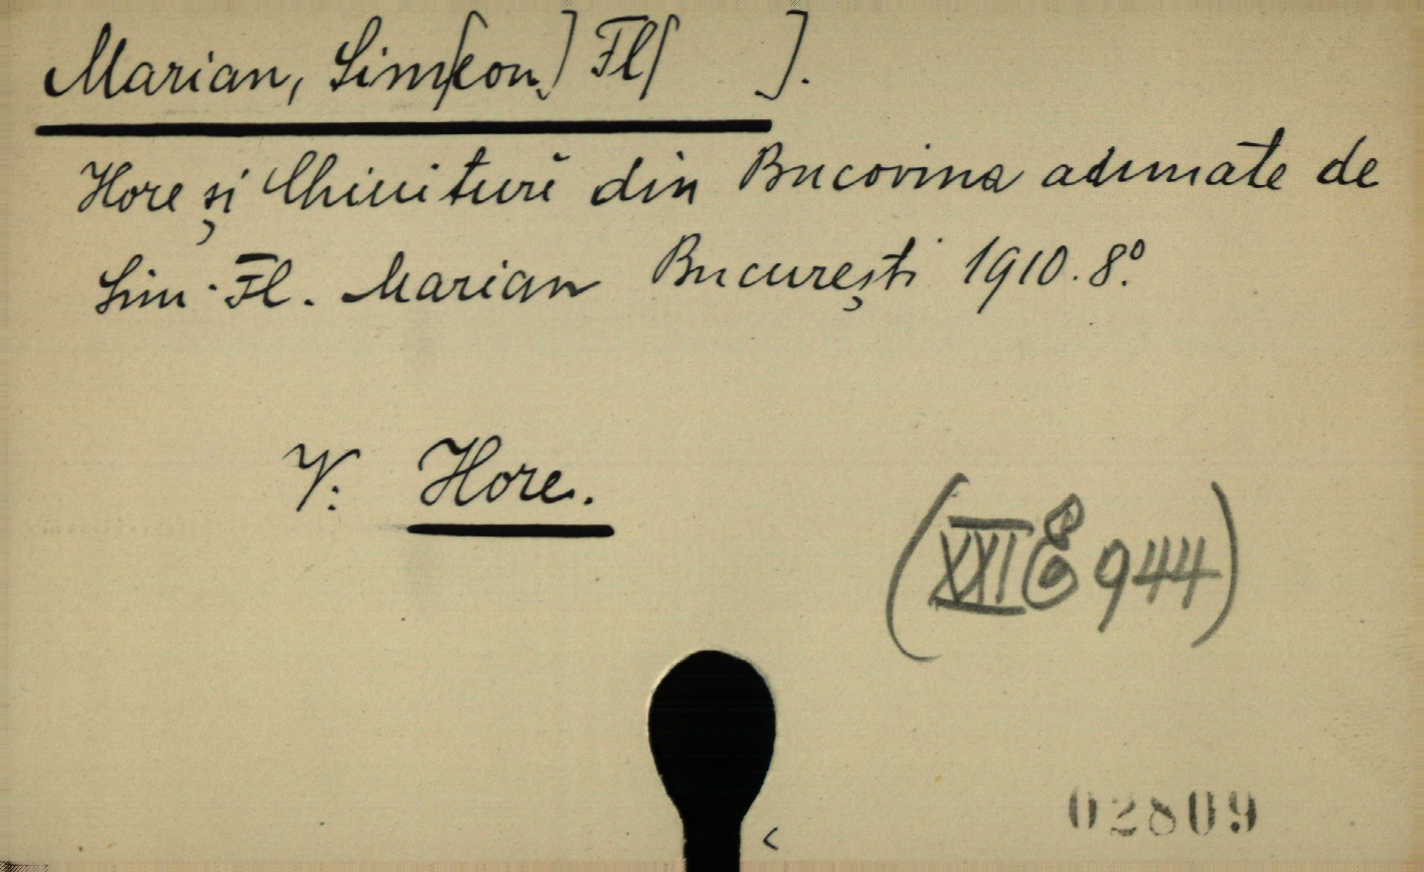 Marian, Sim[eon] Fl[ ].
Hore și Chiuituri din Bucovina adunate de
Sim. Fl. Marian București 1910. 8º.
V: Hore.
(XXI E8 944)
02809